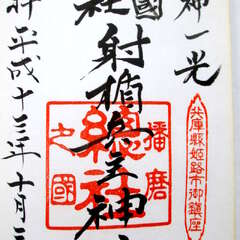 神一光
兵庫縣姫路市御鎮座
國
社
射楯兵主神
播磨
總社
之國
平成十三年十月三